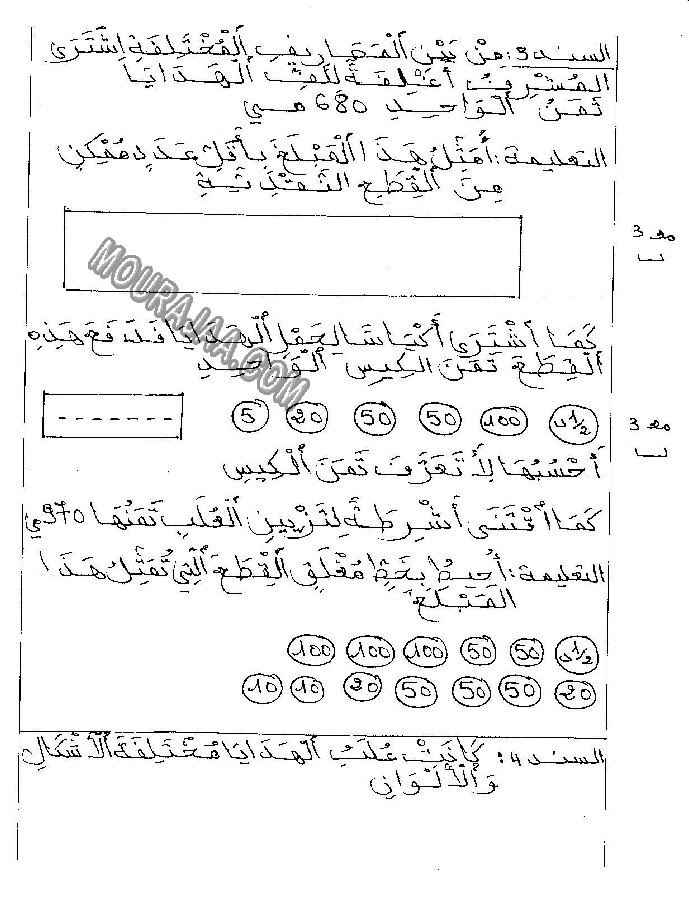 السند 3: مِنْ بَيْنِ الْمَصَارِيفِ الْمُخْتَلِفَةِ اِشْتَرَى
الْمُشْرِفُ أَغْلِفَةً لِلَفِّ الْهَدَايَا
ثَمَنُ الْوَاحِدِ 680 مي
التعليمة: أُمَثِّلُ هَذَا الْمَبْلَغَ بِأَقَلِّ عَدَدٍ مُمْكِنٍ
مِنَ الْقِطَعِ النَّقْدِيَّةِ
مع 3
ـا
كَمَا اشْتَرَى أَكْيَاسًا لِحَمْلِ الْهَدَايَا فَدَفَعَ هَذِهِ
الْقِطَعَ ثَمَنَ الكِيسِ الْوَاحِدِ
1/2 د 100 50 50 20 5 -------
مع 3
ـا
أَحْسُبُهَا لِأَتَعَرَّفَ ثَمَنَ الْكِيسِ
كَمَا اقْتَنَى أَشْرِطَةً لِتَزْيِينِ الْعُلَبِ ثَمَنُهَا 970 مي
التعليمة: أُحِيطُ بِخَطٍّ مُغْلَقٍ الْقِطَعَ الَّتِي تُمَثِّلُ هَذَا
الْمَبْلَغَ
1/2 د 50 50 100 100 100
20 50 50 50 20 10 10
السند 4: كَانَتْ عُلَبُ الْهَدَايَا مُخْتَلِفَةَ الْأَشْكَالِ
وَالْأَلْوَانِ
MOURAJAA.COM